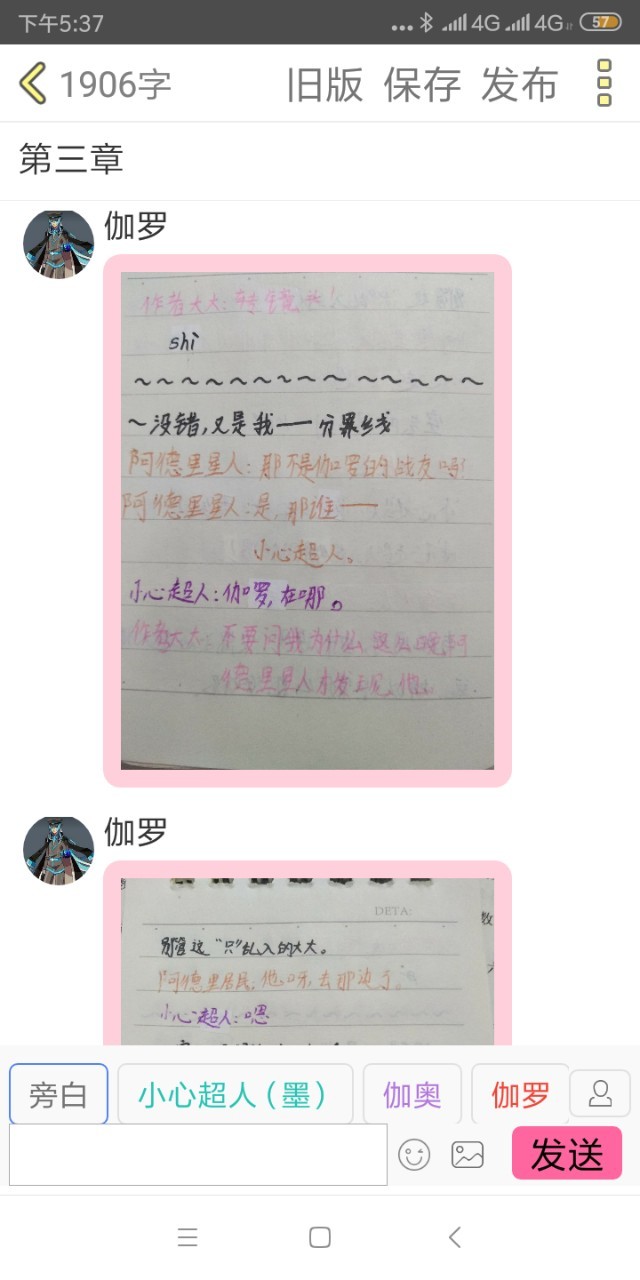 下午5:37
4G 4G 57
1906字 旧版 保存 发布
第三章
伽罗
作者大大:
shi
~~~~~~~~~~~~~~~
~没错,又是我——分界线
阿德里星人:那不是伽罗的战友吗!
阿德里星人:是,那谁——
小心超人、
小心超人:伽罗,在哪。
作者大大:不要问我为什么
德里星人才发现他
伽罗
DETA:
别管这“只”乱入的大大。
阿德里居民:他呀,去那边了。
小心超人:嗯
旁白 小心超人(墨) 伽奥 伽罗
发送